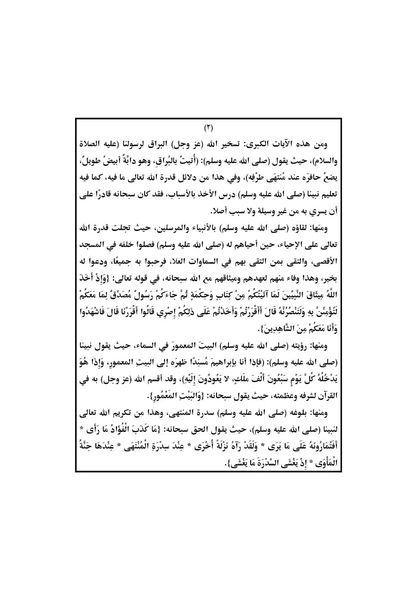 (٢)
ومن هذه الآيات الكبرى: تسخير الله (عز وجل) البراق لرسولنا (عليه الصلاة
والسلام)، حيث يقول (صلى الله عليه وسلم): (أُتيتُ بالبُراقِ، وهو دابَّةٌ أبيضُ طويلٌ،
يضعُ حافرَه عند مُنتَهَى طرْفِه)، وفي هذا من دلائل قدرة الله تعالى ما فيه، كما فيه
تعليم نبينا (صلى الله عليه وسلم) درس الأخذ بالأسباب، فقد كان سبحانه قادرًا على
أن يسري به من غير وسيلة ولا سبب أصلا.
ومنها: لقاؤه (صلى الله عليه وسلم) بالأنبياء والمرسلين، حيث تجلت قدرة الله
تعالى على الإحياء، حين أحياهم له (صلى الله عليه وسلم) فصلوا خلفه في المسجد
الأقصى، والتقى بمن التقى بهم في السماوات العلا، فرحبوا به جميعًا، ودعوا له
بخير، وهذا وفاء منهم لعهدهم وميثاقهم مع الله سبحانه، في قوله تعالى: {وَإِذْ أَخَذَ
اللَّهُ مِيثَاقَ النَّبِيِّينَ لَمَا آتَيْتُكُمْ مِنْ كِتَابٍ وَحِكْمَةٍ ثُمَّ جَاءَكُمْ رَسُولٌ مُصَدِّقٌ لِمَا مَعَكُمْ
لَتُؤْمِنُنَّ بِهِ وَلَتَنْصُرُنَّهُ قَالَ أَأَقْرَرْتُمْ وَأَخَذْتُمْ عَلَى ذَلِكُمْ إِصْرِي قَالُوا أَقْرَرْنَا قَالَ فَاشْهَدُوا
وَأَنَا مَعَكُمْ مِنَ الشَّاهِدِينَ}.
ومنها: رؤيته (صلى الله عليه وسلم) البيتَ المعمورَ في السماء، حيث يقول نبينا
(صلى الله عليه وسلم): (فإذا أنا بإبراهيمَ مُسنِدًا ظهرَه إلى البيتِ المعمورِ، وَإِذَا هُوَ
يَدْخُلُهُ كُلَّ يَوْمٍ سَبْعُونَ أَلْفَ مَلَكٍ، لا يَعُودُونَ إِلَيْهِ)، وقد أقسم الله (عز وجل) به في
القرآن لشرفه وعظمته، حيث يقول سبحانه: {وَالْبَيْتِ الْمَعْمُورِ}.
ومنها: بلوغه (صلى الله عليه وسلم) سدرة المنتهى، وهذا من تكريم الله تعالى
لنبينا (صلى الله عليه وسلم)، حيث يقول الحق سبحانه: {مَا كَذَبَ الْفُؤَادُ مَا رَأَى *
أَفَتُمَارُونَهُ عَلَى مَا يَرَى * وَلَقَدْ رَآهُ نَزْلَةً أُخْرَى * عِنْدَ سِدْرَةِ الْمُنْتَهَى * عِنْدَهَا جَنَّةُ
الْمَأْوَى * إِذْ يَغْشَى السِّدْرَةَ مَا يَغْشَى}.